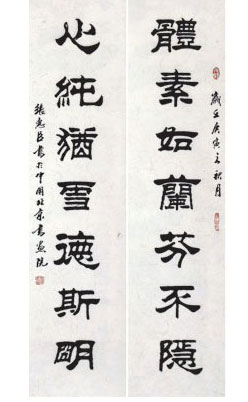 歲在庚寅之秋月
體素如蘭芬不隱
心純猶雪德斯明
張惠臣書於中國北京書畫院